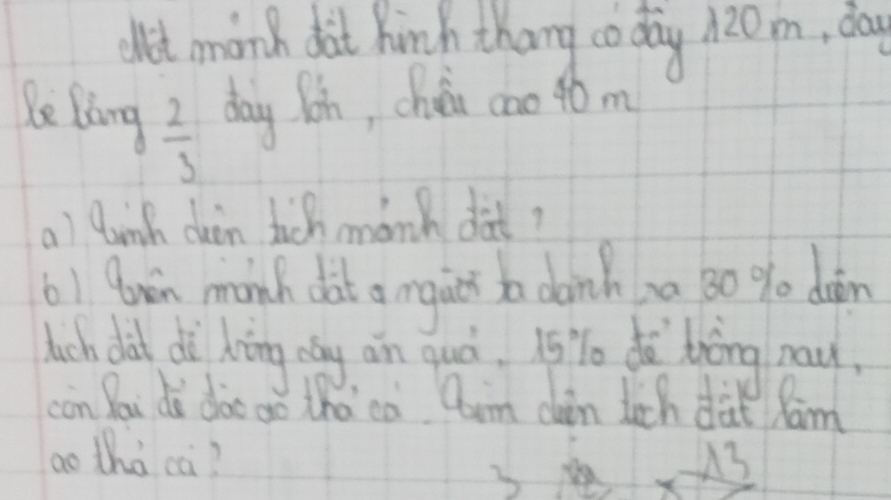 Một mảnh đất hình thang có đáy 120 m, đáy
bé bằng 2/3 đáy lớn, chiều cao 40 m
a) Tính diện tích mảnh đất?
b) Trên mảnh đất người ta dành ra 30 % diện
tích đất để trồng cây ăn quả, 15% để trồng rau,
còn lại để đào ao thả cá. Tính diện tích đất làm
ao thả cá?
3 13